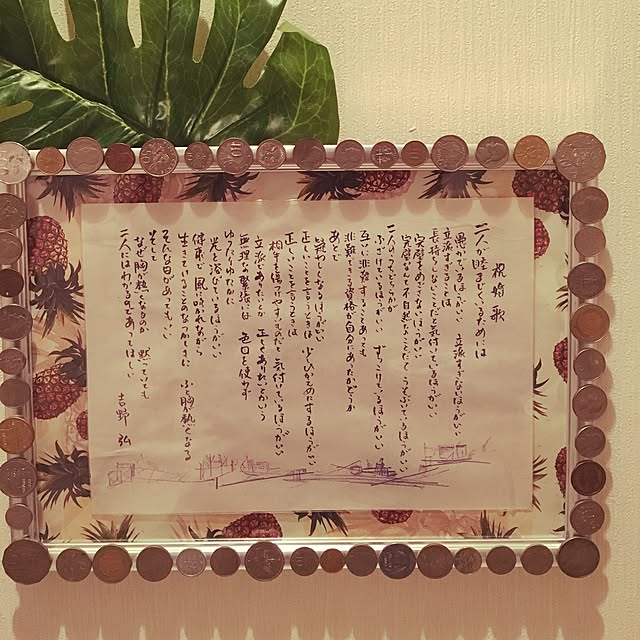 祝婚歌
二人が睦まじくいるためには
愚かでいるほうがいい　立派すぎないほうがいい
立派すぎることは
長持ちしないことだと気付いているほうがいい
完璧をめざさないほうがいい
完璧なんて不自然なことだと　うそぶいているほうがいい
二人のうちどちらかが
ふざけているほうがいい　ずっこけているほうがいい
互いに非難することがあっても
非難できる資格が自分にあったかどうか
あとで
疑わしくなるほうがいい
正しいことを言うときは　少しひかえめにするほうがいい
正しいことを言うときは
相手を傷つけやすいものだと気付いているほうがいい
立派でありたいとか　正しくありたいとかいう
無理な緊張には　色目を使わず
ゆったりゆたかに
光を浴びているほうがいい
健康で　風に吹かれながら
生きていることのなつかしさに　ふと胸が熱くなる
そんな日があってもいい
そして
なぜ胸が熱くなるのか　黙っていても
二人にはわかるのであってほしい
吉野　弘